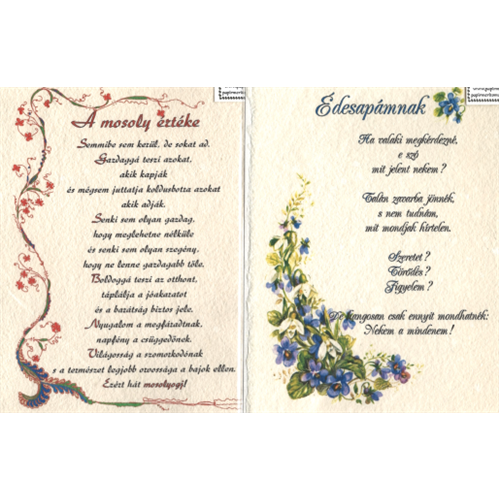 A mosoly értéke
Semmibe sem kerül, de sokat ad.
Gazdaggá teszi azokat,
akik kapják
és mégsem juttatja koldusbotra azokat
akik adják.
Senki sem olyan gazdag,
hogy meglehetne nélküle
és senki sem olyan szegény,
hogy ne lenne gazdagabb tőle.
Boldoggá teszi az otthont,
táplálja a jóakaratot
és a barátság biztos jele.
Nyugalom a megfáradtnak,
napfény a csüggedőnek.
Világosság a szomorkodónak
s a természet legjobb orvossága a bajok ellen.
Ezért hát mosolyogj!
Édesapámnak
Ha valaki megkérdezné,
e szó
mit jelent nekem?
Talán zavarba jönnék,
s nem tudnám,
mit mondjak hirtelen.
Szeretet?
Törődés?
Figyelem?
De hangosan csak ennyit mondhatnék:
Nekem a mindenem!